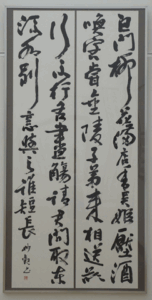 白門柳花滿店香吳姬壓酒
喚客嘗金陵子弟來相送欲
行不行各盡觴請君問取東
流水別意與之誰短長